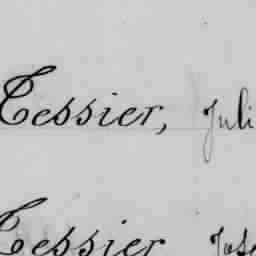 Tessier, Juli
Tessier Jos